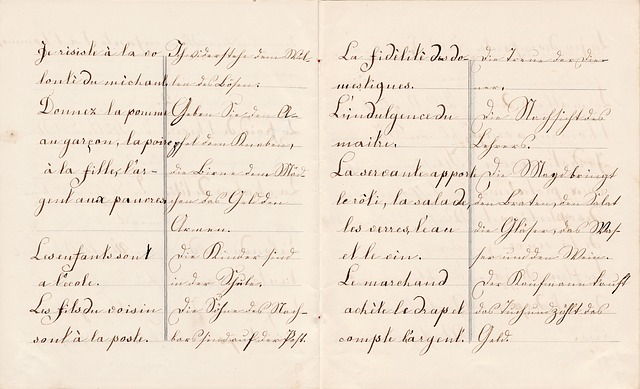 Je risiste à la vo
lonté du méchant
Donnez la pomme
au garçon, la poire
à la fille, l'ar-
gent aux pauvres.
Les enfants sont
a l'école.
Les fils du voisin
sont à la poste.
Ich widerstehe dem Wil-
len des Bösen.
Geben Sie den A-
pfel dem Knaben,
die Birne dem Mäd-
chen das Geld den
Armen.
Die Kinder sind
in der Schule.
Die Söhne des Nach-
bars sind auf der Post.
La fidélité des do-
mestiques.
L'indulgence du
maitre.
La servante apporte
le rôti, la salade,
les verres, l'eau
et le vin.
Le marchand
achète le drap et
compte l'argent.
Die Treue der Die-
ner.
Die Nachsicht des
Lehrers.
Die Magd bringt
den Braten, den Salat
die Gläser, das Was-
ser und den Wein.
Der Kaufmann kauft
das Tuch und zählt das
Geld.